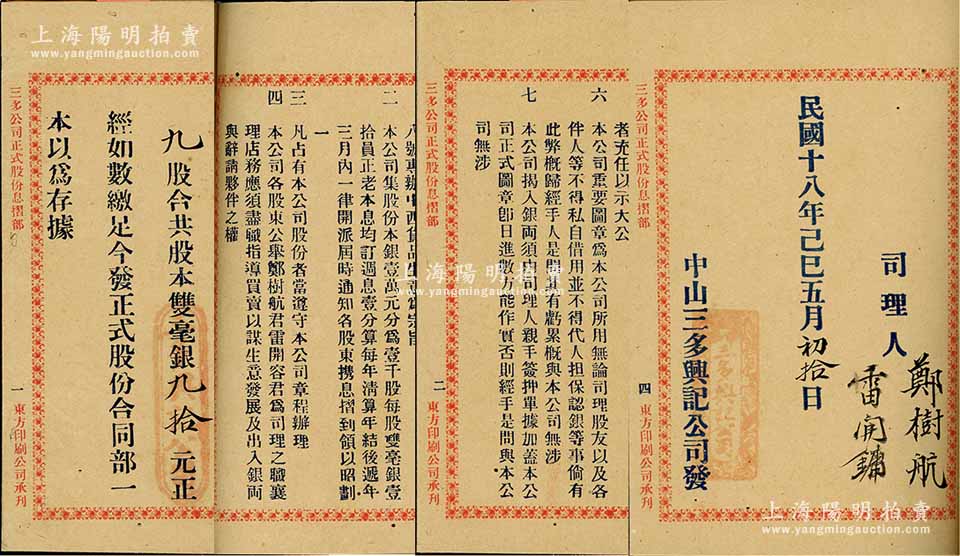 上海陽明拍賣
www.yangmingauction.com
上海陽明拍賣
www.yangmingauction.com
上海陽明拍賣
www.yangmingauction.com
三多公司正式股份息摺部
九 股合共股本雙毫銀九拾 元正
經如數繳足今發正式股份合同部一
本以爲存據
一 東方印刷公司承刊
二 本公司集股份本銀壹萬元分爲壹千股每股雙毫銀壹
拾員正老本息均訂週息壹分算每年清算年結後遞年
三月內一律開派屆時通知各股東携息摺到領以昭劃
一
三 凡占有本公司股份者當遵守本公司章程辦理
四 本公司各股東公舉鄭樹航君雷開容君爲司理之職襄
理店務應須盡職指導買賣以謀生意發展及出入銀両
與辭請夥伴之權
三多公司正式股份息摺部
者充任以示大公
六 本公司重要圖章爲本公司所用無論司理股友以及各
件人等不得私自借用並不得代人担保認銀等事倘有
此弊概歸經手人是問其有虧累概與本公司無涉
七 本公司揭入銀両須由司理人親手簽押單據加蓋本公
司正式圖章卽日進數方能作實否則經手是問與本公
司無涉
二 東方印刷公司承刊
三多公司正式股份息摺部
司理人 鄭樹航
雷開鏞
民國十八年己巳五月初拾日
中山三多興記公司發
四 東方印刷公司承刊